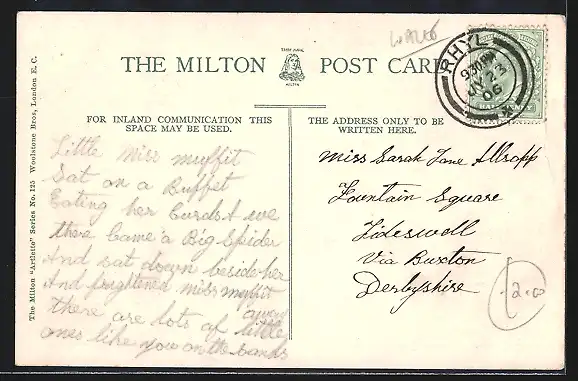 WALES
RHYL
9 30 PM
JY 23
06
THE MILTON POST CARD
MILTON
HALFPENNY
FOR INLAND COMMUNICATION THIS
SPACE MAY BE USED.
THE ADDRESS ONLY TO BE
WRITTEN HERE.
Little miss muffit
Sat on a Buffet
Eating her Curds & we
there Came a Big Spider
And sat down beside her
And frightened miss muffit
away
there are lots of little
ones like you on the sands
Miss Sarah Jane Allsopp
Fountain Square
Tideswell
Via Buxton
Derbyshire
2.00
The Milton "Artlette" Series No. 125 Woolstone Bros, London E. C.